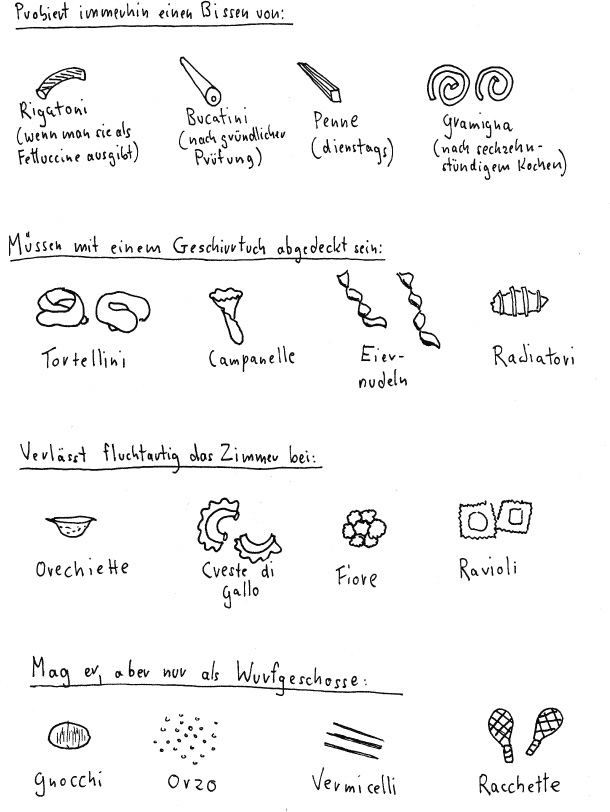 Probiert immerhin einen Bissen von:
Rigatoni
(wenn man sie als
Fettuccine ausgibt)
Bucatini
(nach gründlicher
Prüfung)
Penne
(dienstags)
Gramigna
(nach sechzehn-
stündigem Kochen)
Müssen mit einem Geschirrtuch abgedeckt sein:
Tortellini
Campanelle
Eier-
nudeln
Radiatori
Verlässt fluchtartig das Zimmer bei:
Orechiette
Creste di
gallo
Fiore
Ravioli
Mag er, aber nur als Wurfgeschosse:
Gnocchi
Orzo
Vermicelli
Racchette